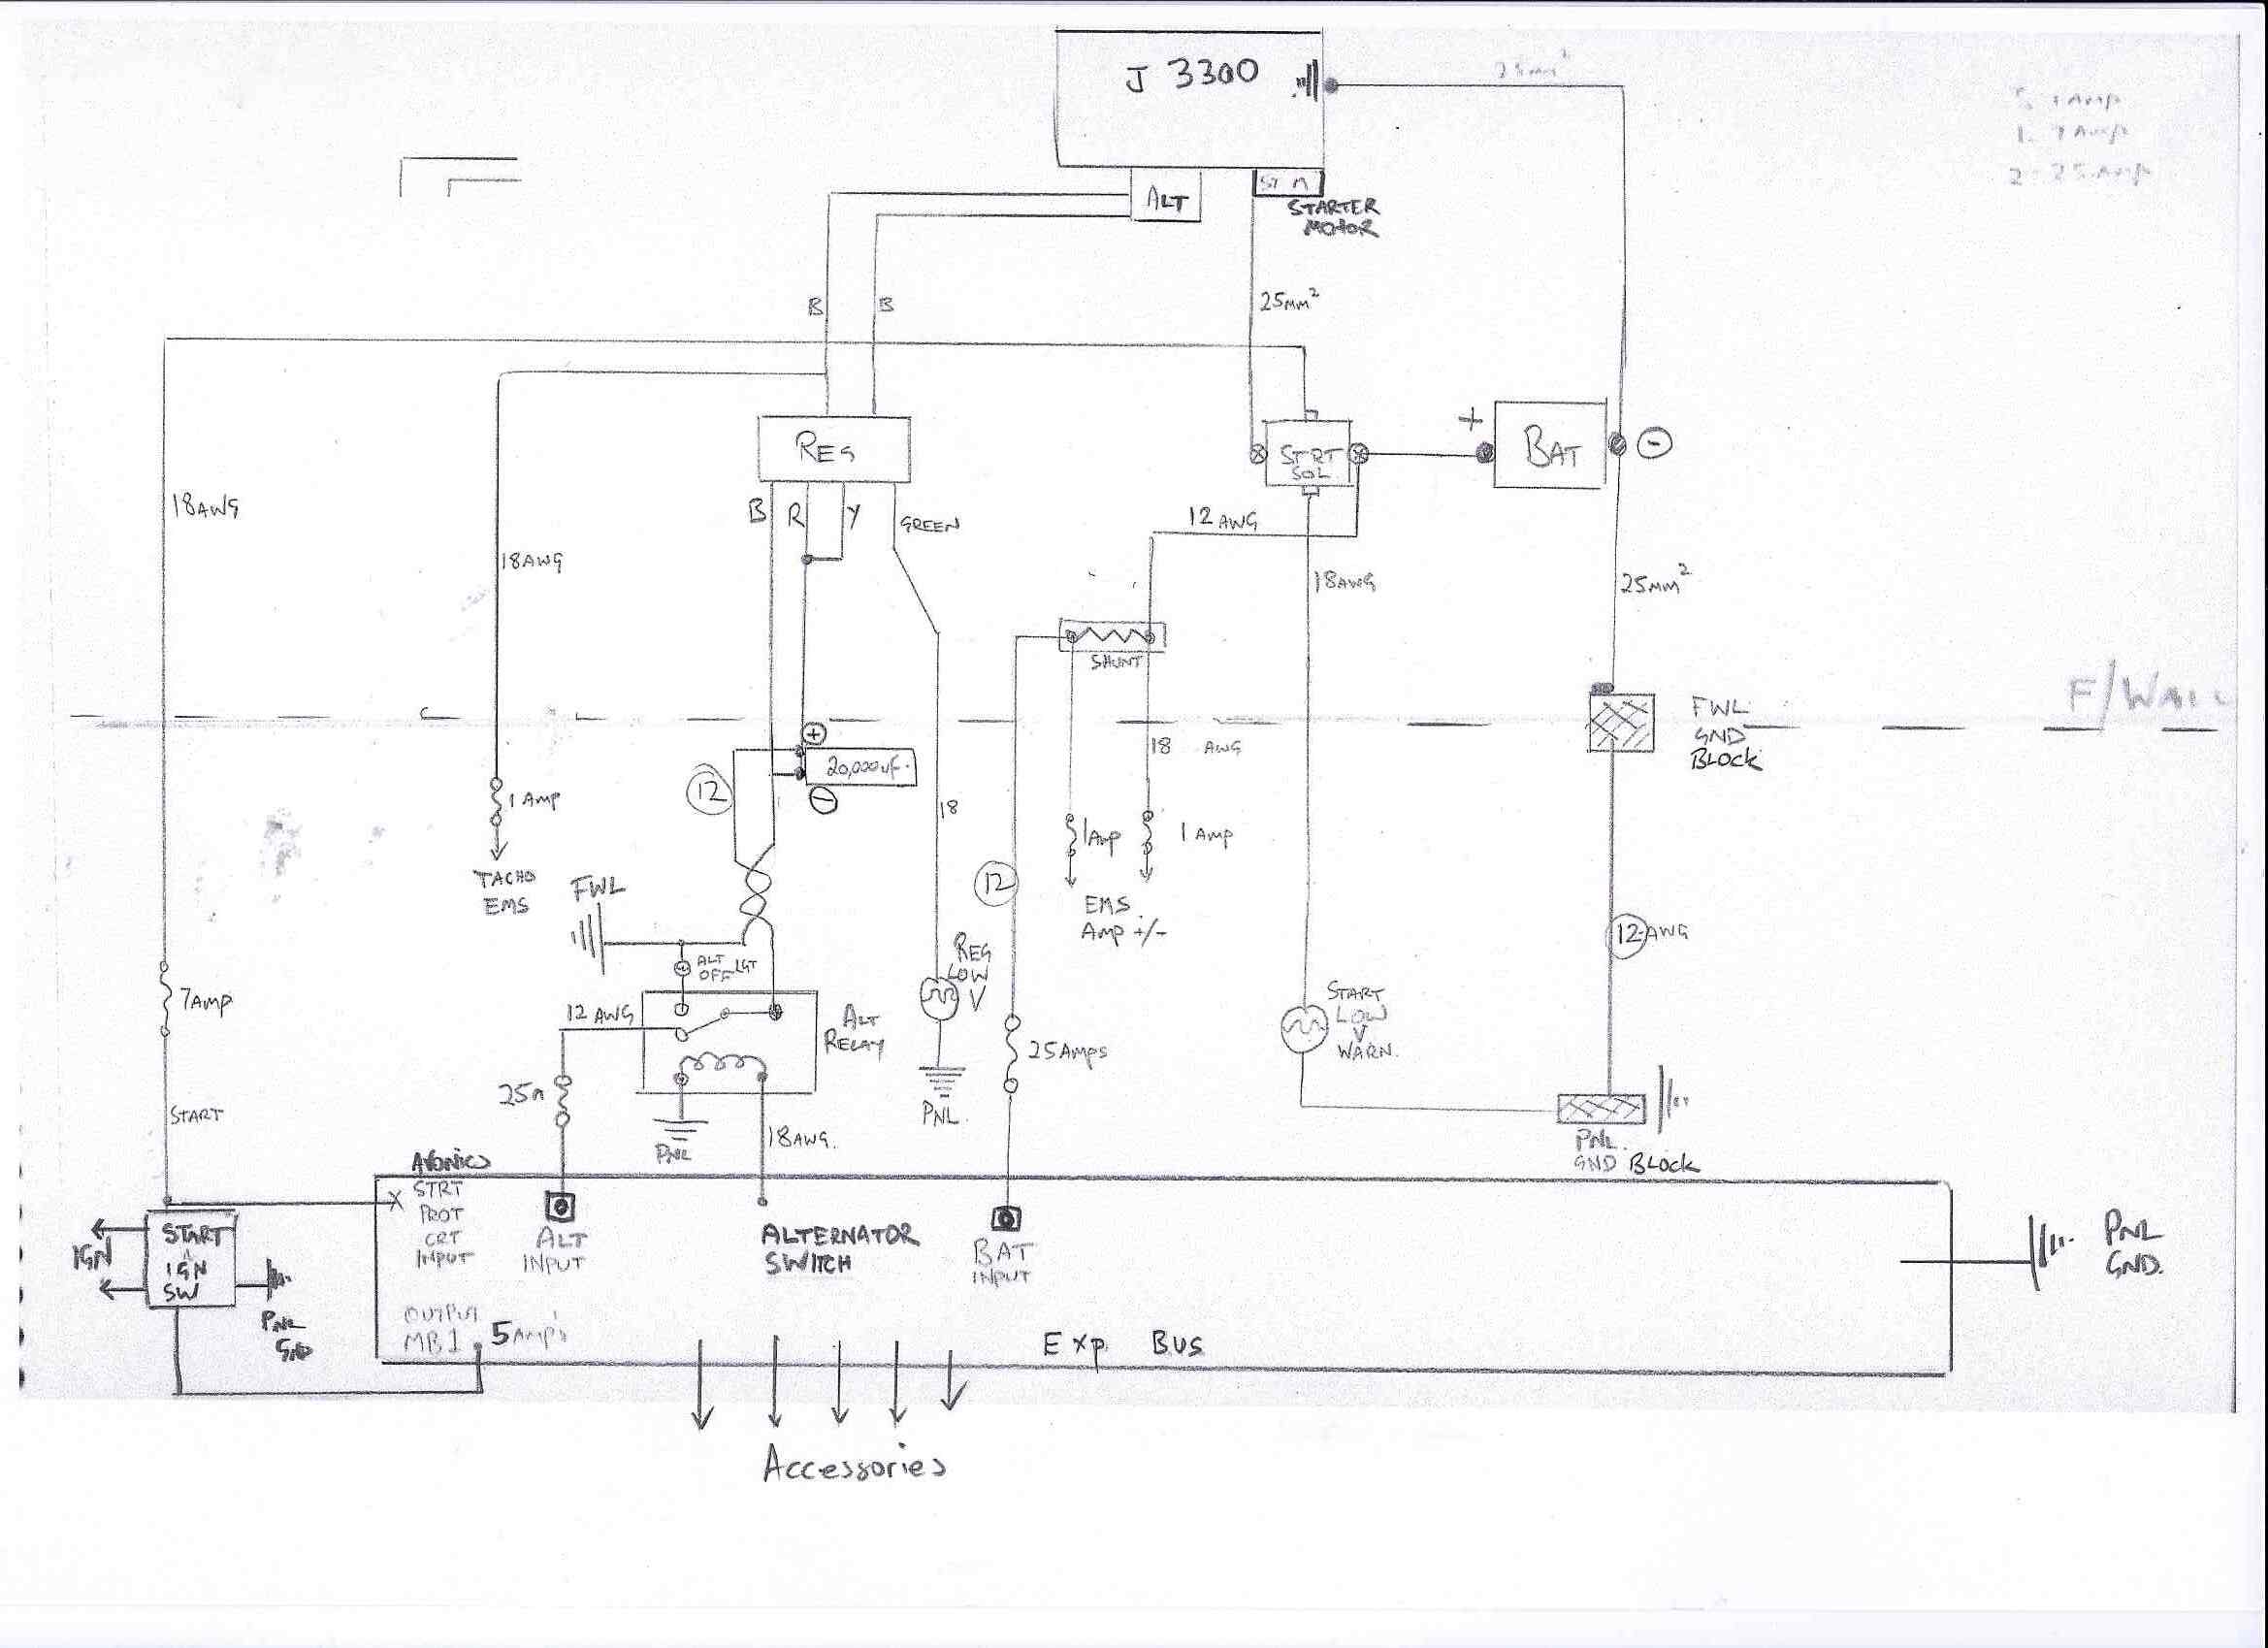 J 3300
25mm²
1 Amp
1. 7 Amp
2. 25 Amp
ALT
ST M
STARTER
MOTOR
B
B
25mm²
REG
+
BAT
-
STRT
SOL
18AWG
B
R
Y
GREEN
12 AWG
18AWG
18AWG
25mm²
SHUNT
F/WALL
FWL
GND
BLOCK
+
18 AWG
20,000uf.
12
-
1 AMP
18
1Amp
1 AMP
TACHO
EMS
FWL
12
EMS
AMP +/-
12 AWG
REG
LOW
V
ALT
OFF LGT
7AMP
12 AWG
ALT
RELAY
START
LOW
V
WARN.
25 AMPS
25A
START
PNL
PNL.
18AWG.
PNL.
GND BLOCK
AVONICS
STRT
PROT
CRT
INPUT
START
IGN
SW
IGN
ALT
INPUT
ALTERNATOR
SWITCH
BAT
INPUT
PNL
GND.
PNL
GND
OUTPUT
MB1
5 AMPS
Exp. Bus
Accessories